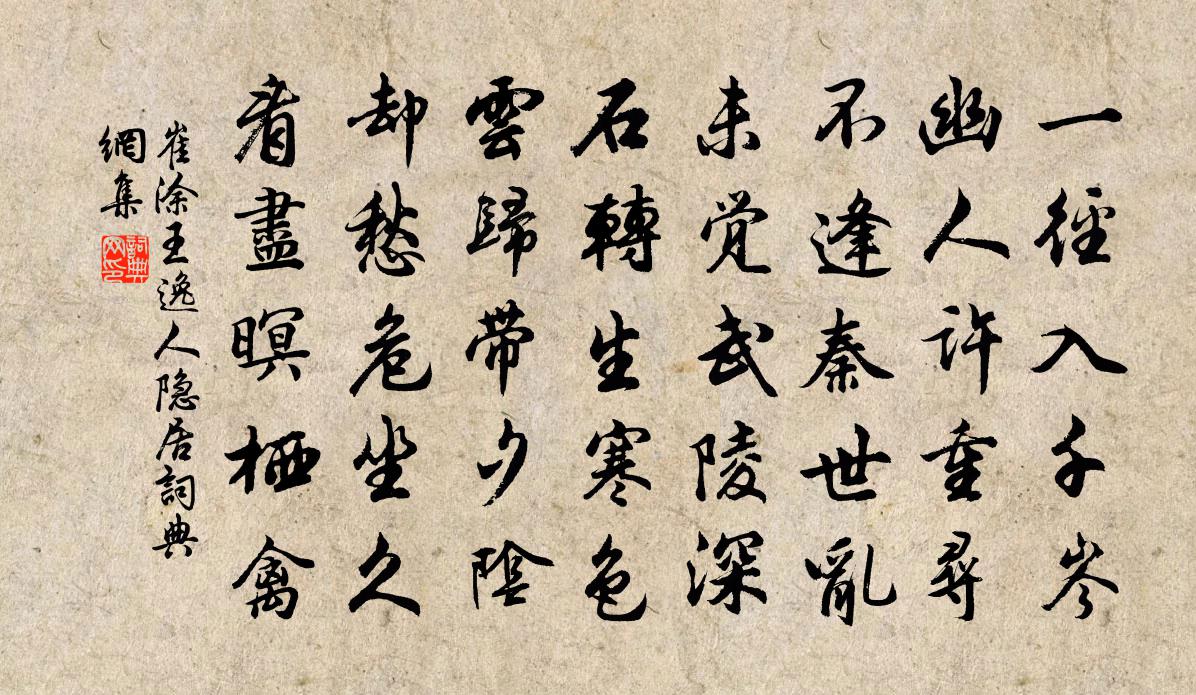 一徑入千岑
幽人許重尋
不逢秦世亂
未覺武陵深
石轉生寒色
雲歸帶夕陰
却愁危坐久
看盡暝栖禽
崔涂王逸人隐居詞典
網集
詞典
网印